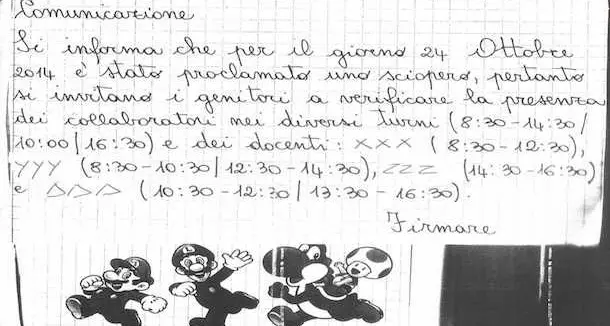 Comunicazione
Si informa che per il giorno 24 Ottobre
2014 è stato proclamato uno sciopero, pertanto
si invitano i genitori a verificare la presenza
dei collaboratori nei diversi turni (8:30-14:30/
10:00|16:30) e dei docenti: XXX (8:30-12:30),
YYY (8:30-10:30|12:30-14:30), ZZZ (14:30-16:30)
e △△△ (10:30-12:30|13:30-16:30).
Firmare